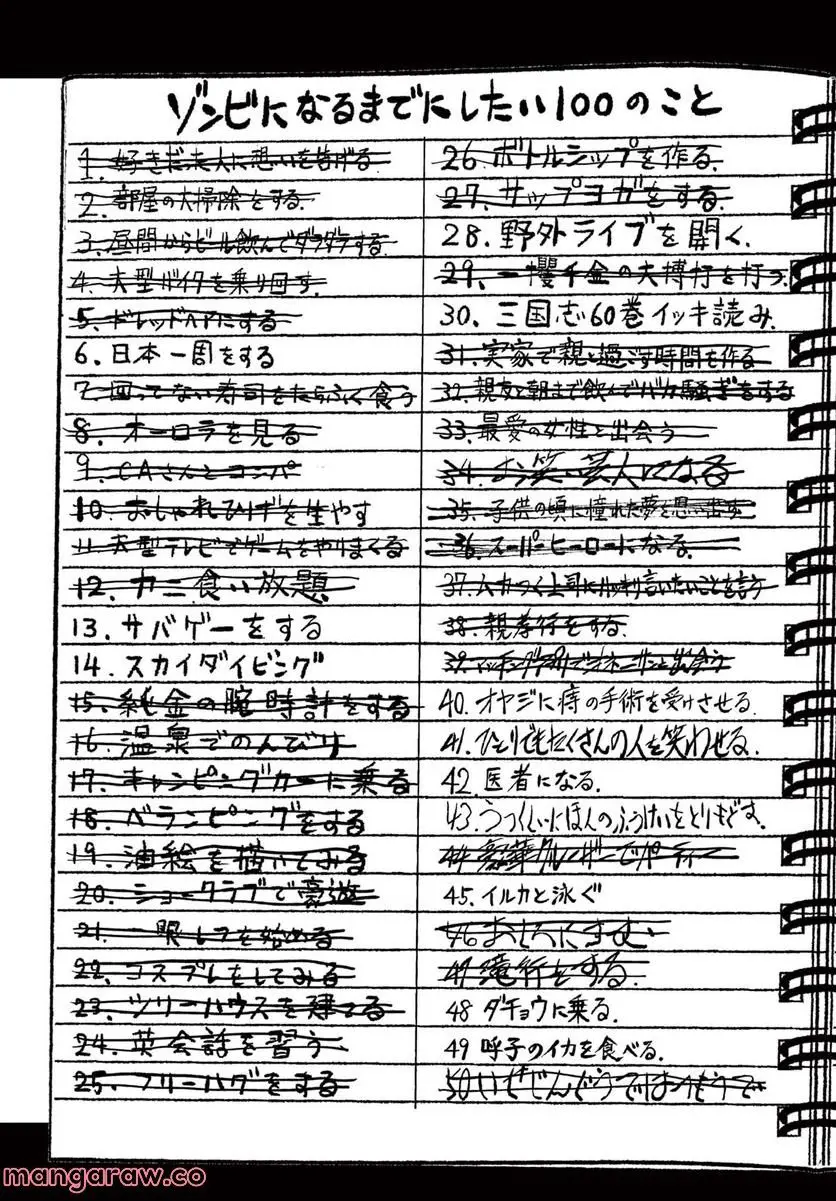 ゾンビになるまでにしたい100のこと
1. 好きだった人に想いを告げる
2. 部屋の大掃除をする.
3. 昼間からビール飲んでダラダラする
4. 大型バイクを乗り回す.
5. ドレッドヘアにする
6. 日本一周をする
7. 回ってない寿司をたらふく食う
8. オーロラを見る
9. CAさんとコンパ
10. おしゃれひげを生やす
11. 大型テレビでゲームをやりまくる
12. カニ食い放題
13. サバゲーをする
14. スカイダイビング
15. 純金の腕時計をする
16. 温泉でのんびり
17. キャンピングカーに乗る
18. ベランピングをする
19. 油絵を描いてみる
20. ショークラブで豪遊
21. 一眼レフを始める
22. コスプレをしてみる
23. ツリーハウスを建てる
24. 英会話を習う
25. フリーハグをする
26. ボトルシップを作る.
27. サップヨガをする.
28. 野外ライブを開く.
29. 一攫千金の大博打を打つ.
30. 三国志60巻イッキ読み.
31. 実家で親と過ごす時間を作る
32. 親友と朝まで飲んでバカ騒ぎをする
33. 最愛の女性と出会う
34. お笑い芸人になる
35. 子供の頃に憧れた夢を思い出す.
36. スーパーヒーローになる.
37. ムカつく上司にハッキリ言いたいことを言う
38. 親孝行をする.
39. マッチングアプリで と出会う
40. オヤジに痔の手術を受けさせる.
41. ひとりでもたくさんの人を笑わせる.
42. 医者になる.
43. うつくしいにほんのふうけいをとりもどす.
44. 豪華クルーザーでパーティー
45. イルカと泳ぐ
46
47. 滝行をする.
48 ダチョウに乗る.
49 呼子のイカを食べる.
50
mangaraw.co